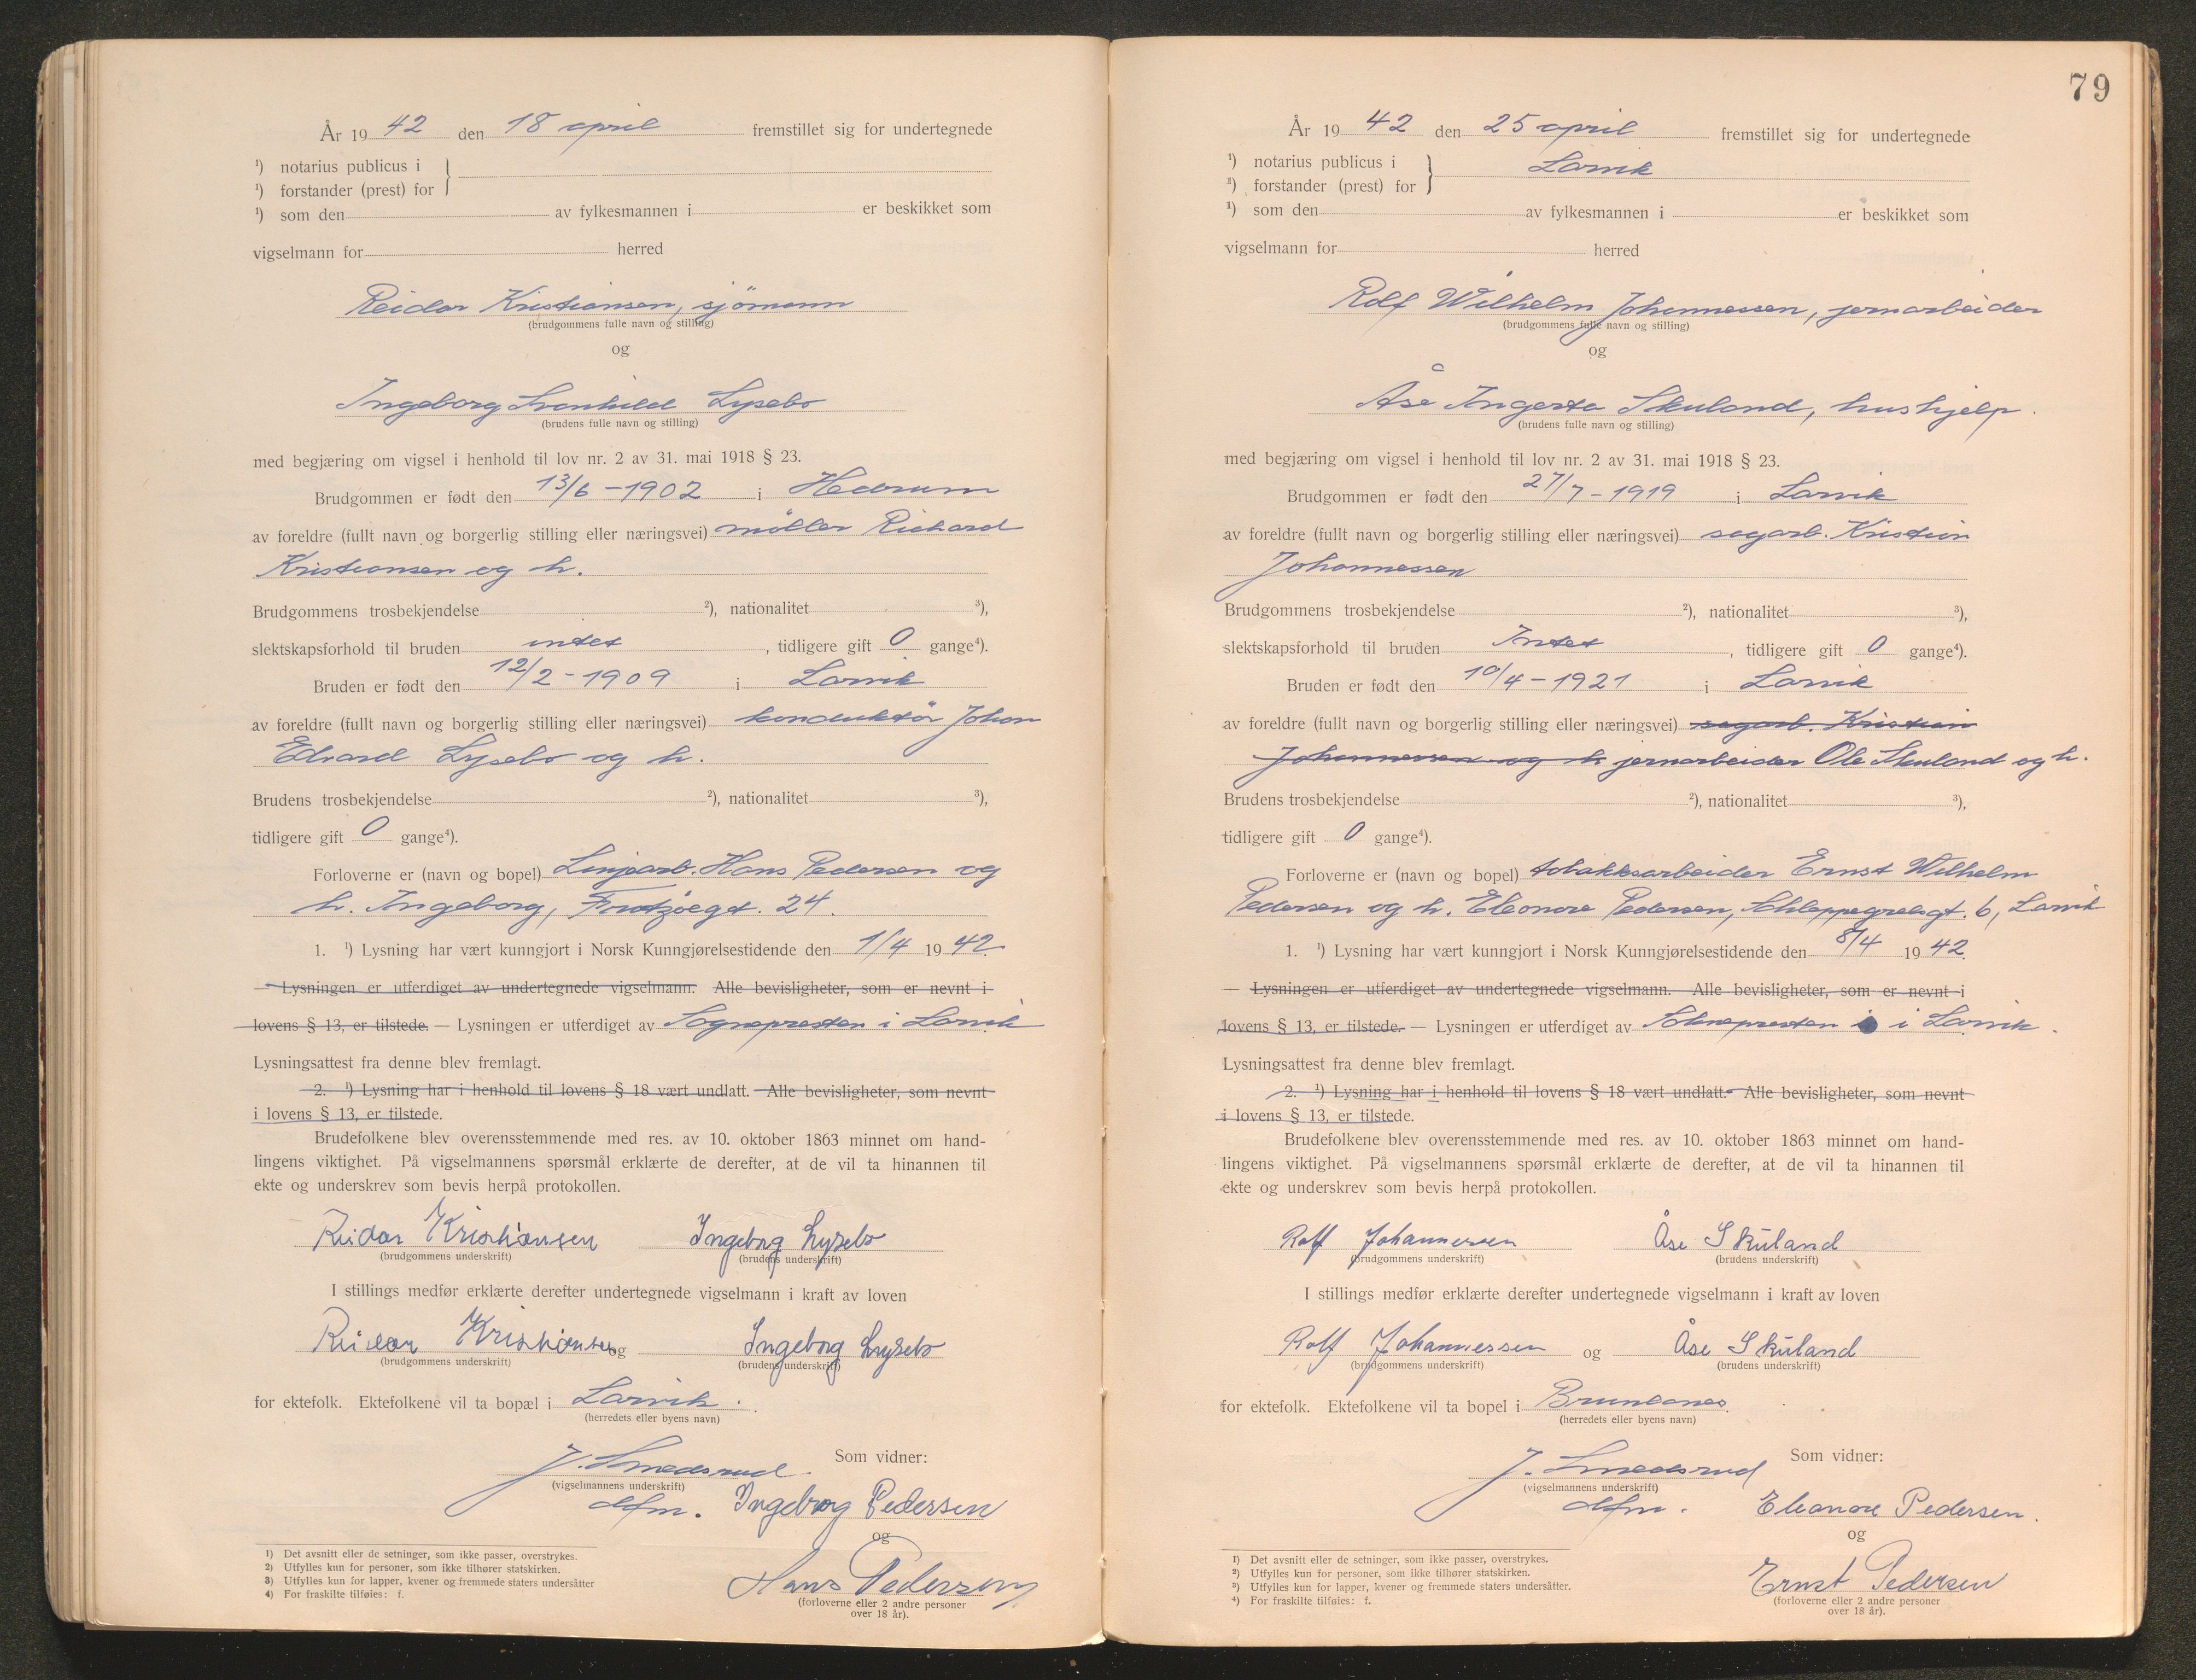 År 19 42 den 18 april fremstillet sig for undertegnede
¹) notarius publicus i
¹) forstander (prest) for
¹) som den av fylkesmannen i er beskikket som
vigselmann for herred
Reidar Kristiansen, sjömann
(brudgommens fulle navn og stilling)
og
Ingeborg Svanhild Lysebo
(brudens fulle navn og stilling)
med begjæring om vigsel i henhold til lov nr. 2 av 31. mai 1918 § 23.
Brudgommen er født den 13/6 - 1902 i Hedrum
av foreldre (fullt navn og borgerlig stilling eller næringsvei) möller Richard
Kristiansen og h.
Brudgommens trosbekjendelse ²), nationalitet ³),
slektskapsforhold til bruden intet, tidligere gift 0 gange⁴).
Bruden er født den 12/2 - 1909 i Larvik
av foreldre (fullt navn og borgerlig stilling eller næringsvei) konduktör Johan
Edvard Lysebo og h.
Brudens trosbekjendelse ²), nationalitet ³),
tidligere gift 0 gange⁴).
Forloverne er (navn og bopel) Linjearb. Hans Pedersen og
h. Ingeborg, 24.
1. ¹) Lysning har vært kunngjort i Norsk Kunngjørelsestidende den 1/4 19 42.
— Lysningen er utferdiget av undertegnede vigselmann. Alle bevisligheter, som er nevnt i
lovens § 13, er tilstede. — Lysningen er utferdiget av Sognepresten i Larvik
Lysningsattest fra denne blev fremlagt.
2. ¹) Lysning har i henhold til lovens § 18 vært undlatt. Alle bevisligheter, som nevnt
i lovens § 13, er tilstede.
Brudefolkene blev overensstemmende med res. av 10. oktober 1863 minnet om hand-
lingens viktighet. På vigselmannens spørsmål erklærte de derefter, at de vil ta hinannen til
ekte og underskrev som bevis herpå protokollen.
Reidar Kristiansen Ingeborg Lysebo
(brudgommens underskrift) (brudens underskrift)
I stillings medfør erklærte derefter undertegnede vigselmann i kraft av loven
Reidar Kristiansen og Ingeborg Lysebo
(brudgommens underskrift) (brudens underskrift)
for ektefolk. Ektefolkene vil ta bopæl i Larvik.
(herredets eller byens navn)
Som vidner:
J. Smedsrud
(vigselmannens underskrift)
dfm. Ingeborg Pedersen
og
Hans Pedersen
(forloverne eller 2 andre personer
over 18 år).
1) Det avsnitt eller de setninger, som ikke passer, overstrykes.
2) Utfylles kun for personer, som ikke tilhører statskirken.
3) Utfylles kun for lapper, kvener og fremmede staters undersåtter
4) For fraskilte tilføies: f.
79
År 19 42 den 25 april fremstillet sig for undertegnede
¹) notarius publicus i Larvik
¹) forstander (prest) for
¹) som den av fylkesmannen i er beskikket som
vigselmann for herred
Rolf Wilhelm Johannessen, jernarbeider
(brudgommens fulle navn og stilling)
og
Åse Ingerta Skuland, hushjelp.
(brudens fulle navn og stilling)
med begjæring om vigsel i henhold til lov nr. 2 av 31. mai 1918 § 23.
Brudgommen er født den 27/7 - 1919 i Larvik
av foreldre (fullt navn og borgerlig stilling eller næringsvei) sagarb. Kristian
Johannessen
Brudgommens trosbekjendelse ²), nationalitet ³),
slektskapsforhold til bruden Intet, tidligere gift 0 gange⁴).
Bruden er født den 10/4 - 1921 i Larvik
av foreldre (fullt navn og borgerlig stilling eller næringsvei) sagarb. Kristian
Johannessen og h. jernarbeider Ole Skuland og h.
Brudens trosbekjendelse ²), nationalitet ³),
tidligere gift 0 gange⁴).
Forloverne er (navn og bopel) tobakksarbeider Ernst Wilhelm
Pedersen og h. Eleonore Pedersen, Schleppegrellsgt. 6, Larvik
1. ¹) Lysning har vært kunngjort i Norsk Kunngjørelsestidende den 8/4 19 42.
— Lysningen er utferdiget av undertegnede vigselmann. Alle bevisligheter, som er nevnt i
lovens § 13, er tilstede. — Lysningen er utferdiget av Soknepresten i Larvik.
Lysningsattest fra denne blev fremlagt.
2. ¹) Lysning har i henhold til lovens § 18 vært undlatt. Alle bevisligheter, som nevnt
i lovens § 13, er tilstede.
Brudefolkene blev overensstemmende med res. av 10. oktober 1863 minnet om hand-
lingens viktighet. På vigselmannens spørsmål erklærte de derefter, at de vil ta hinannen til
ekte og underskrev som bevis herpå protokollen.
Rolf Johannessen Åse Skuland
(brudgommens underskrift) (brudens underskrift)
I stillings medfør erklærte derefter undertegnede vigselmann i kraft av loven
Rolf Johannessen og Åse Skuland
(brudgommens underskrift) (brudens underskrift)
for ektefolk. Ektefolkene vil ta bopel i Brunlanes.
(herredets eller byens navn)
Som vidner:
J. Smedsrud
(vigselmannens underskrift)
dfm. Eleonore Pedersen.
og
Ernst Pedersen
(forloverne eller 2 andre personer
over 18 år).
1) Det avsnitt eller de setninger, som ikke passer, overstrykes.
2) Utfylles kun for personer, som ikke tilhører statskirken.
3) Utfylles kun for lapper, kvener og fremmede staters undersåtter.
4) For fraskilte tilføies: f.